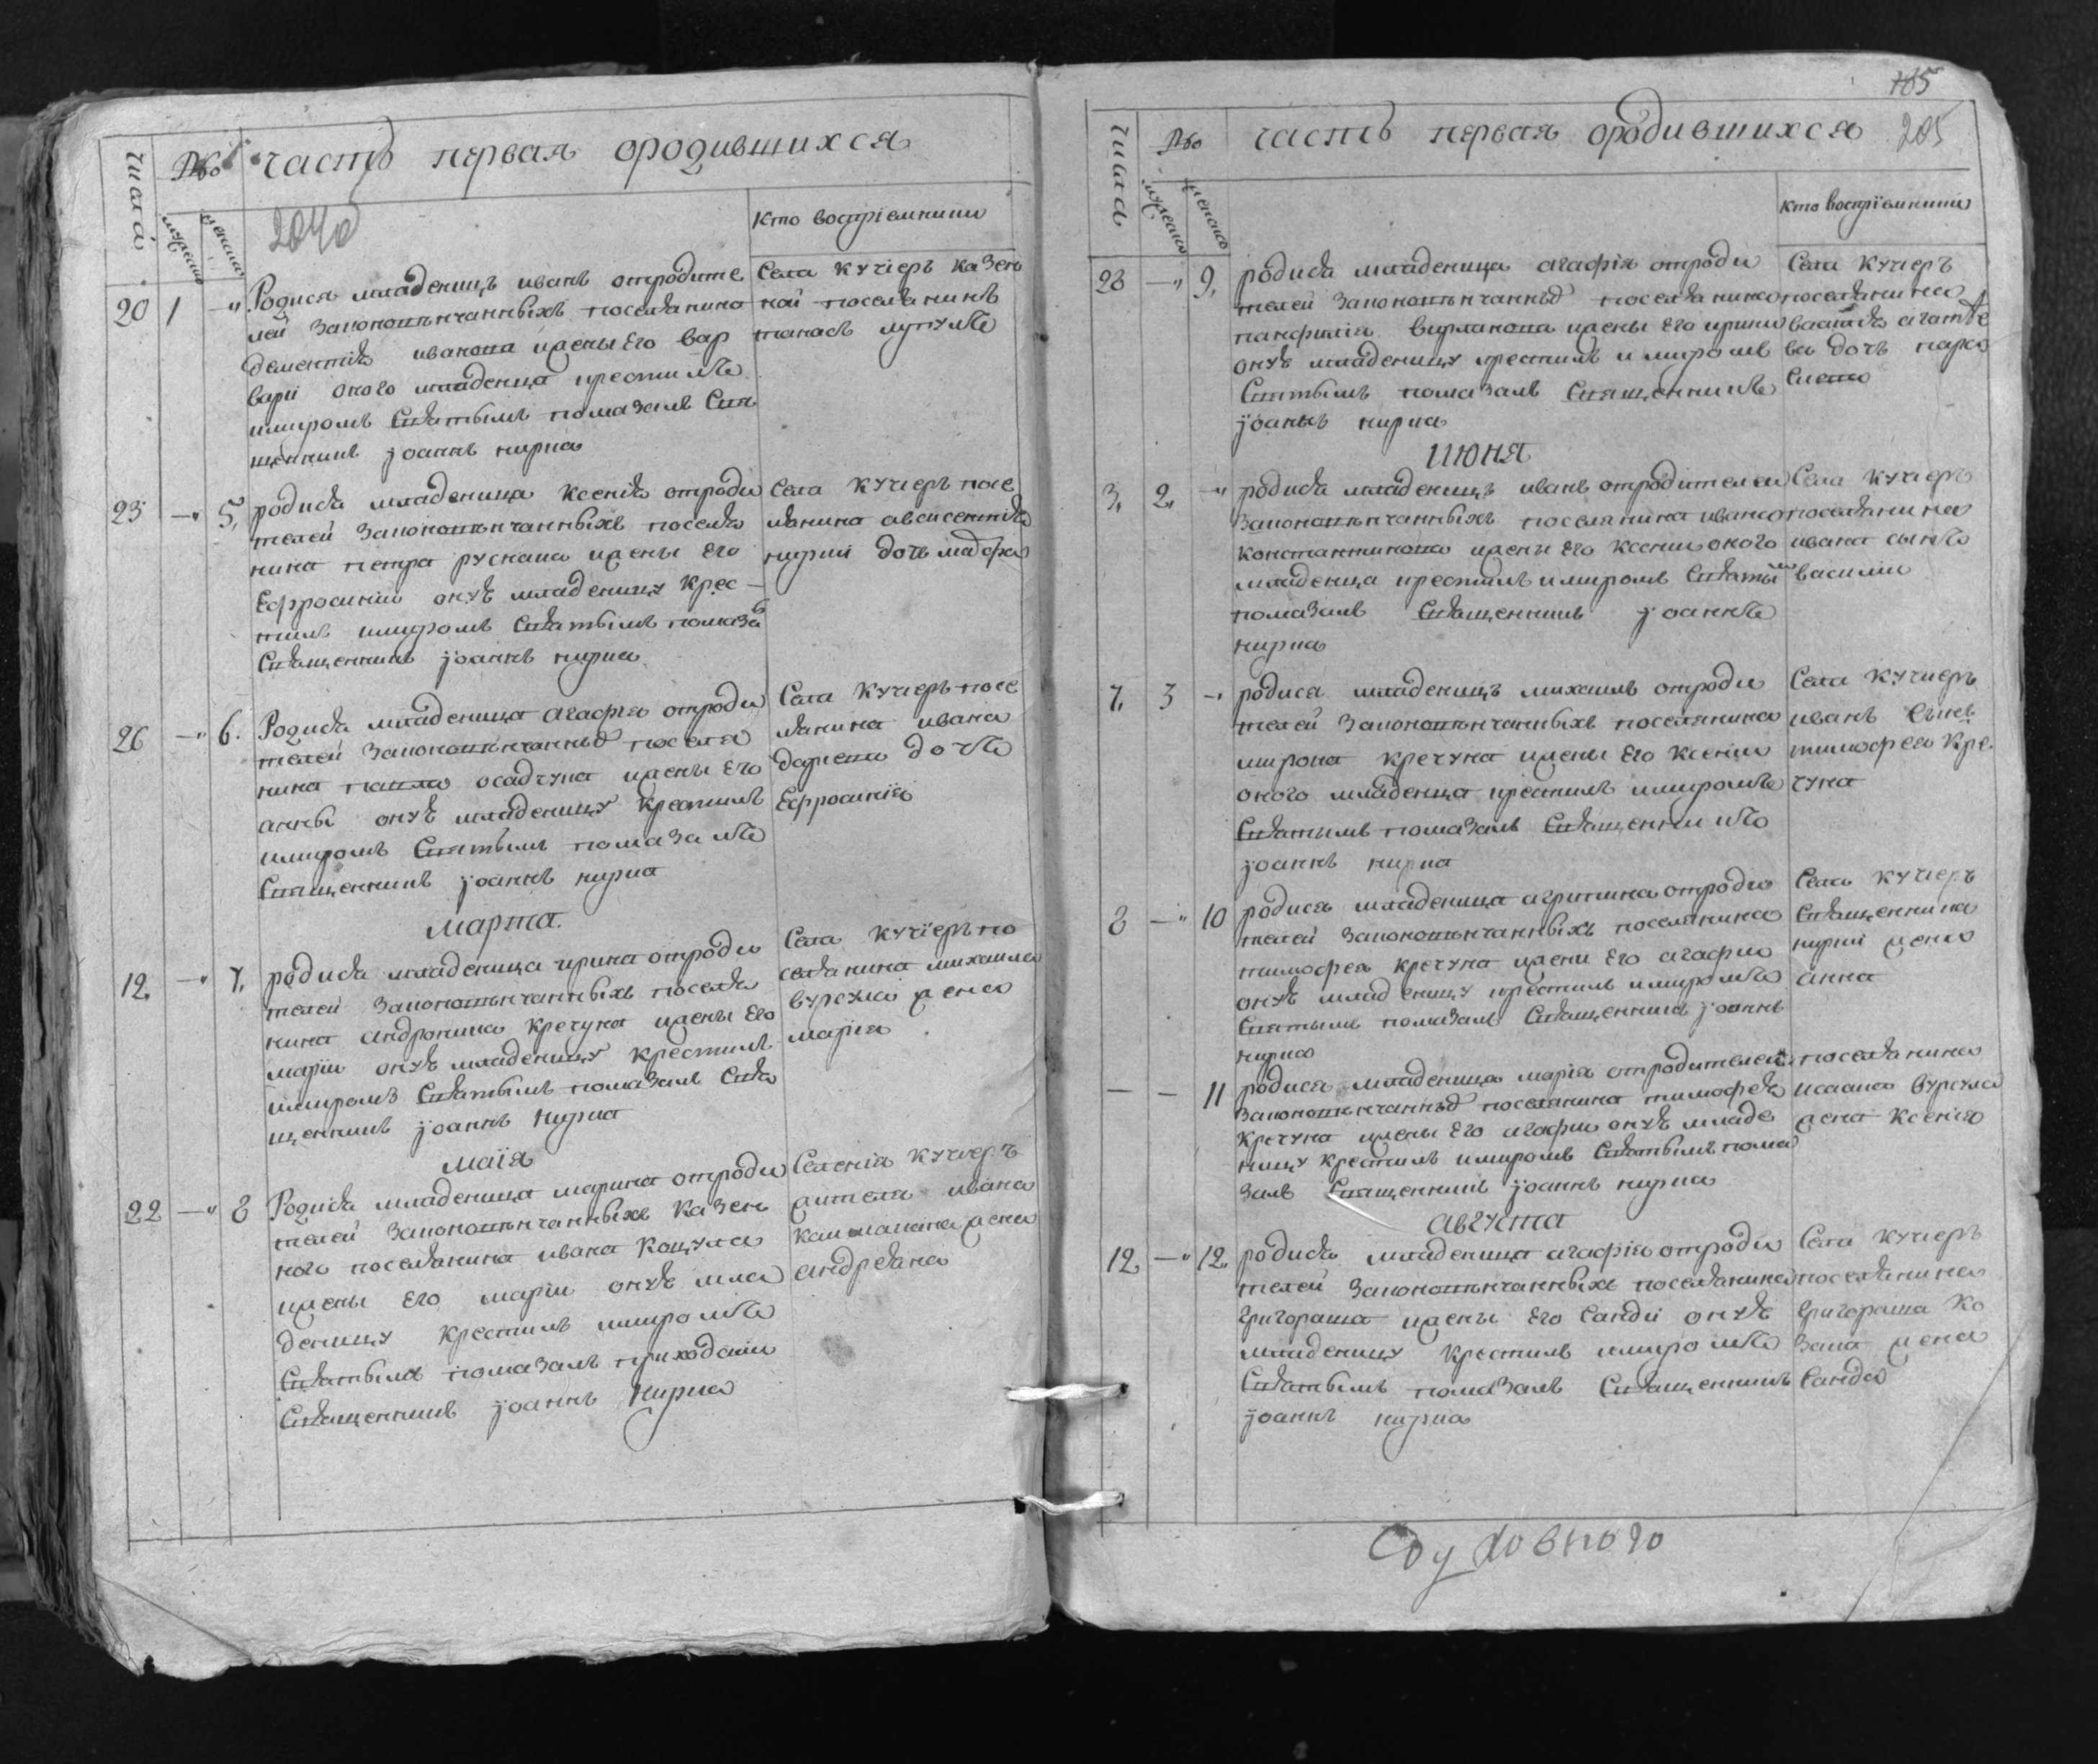 часть первая ородившихся
числа
мужеска
женска
кто воспріемники
20 1 -"
Родися младенецъ иванъ отродите
лей Законовѣнчанныхъ поселянина
дементія иванова жены Его вар
вари оного младенца крестилъ
имиромъ Святымъ помазалъ Свя
щенникъ іоаннъ кирка
Села кучіеръ казен
ной поселянинъ
танась лупулъ
23 -" 5.
родися младеница ксенія отроди
телей Законовѣнчанныхъ поселя
нина петра руснака жены Его
Ефросиніи онуѣ младеницу крес-
тилъ имиромъ Святымъ помаза
Священникъ іоаннъ кирка
Села кучіеръ посе
лянина авксентія
киркі дочь мадфа
26 -" 6.
Родися младеница агафія отроди
телей Законовѣнчанныхъ поселя
нина павла осадчука жены Его
анны онуѣ младеницу крестилъ
имиромъ Святымъ помазалъ
Священникъ іоаннъ кирка
Села кучіеръ посе
лянина ивана
дочь
Ефросинія
марта.
12. -" 7.
родися младеница ирина отроди
телей Законовѣнчанныхъ поселя
нина андроника кречуна жены Его
маріи онуѣ младеницу крестилъ
имиромъ Святымъ помазалъ Свя
щенникъ іоаннъ Кирка
Села кучіеръ по
селянина михаила
бурсука жена
марія
маія
22 -" 8
Родися младеница марина отроди
телей Законовѣнчанныхъ казен
ного поселянина ивана Коцула
жены Его маріи онуѣ мла
деницу крестилъ имиромъ
Святымъ помазалъ приходскій
Священникъ іоаннъ Кирка
Селенія кучіеръ
жителя ивана
жена
андреяна
204
165
205
часть первая ородившихся
числа
мужеска
женска
кто воспріемники
28 -" 9.
родися младеница агафія отроди
телей Законовѣнчанныхъ поселянина
панфилія вирланова жены Его ирини
онуѣ младеницу крестилъ имиромъ
Святымъ помазалъ Священникъ
іоаннъ кирка
Села кучіеръ
поселянина
василія
дочь
июня
3. 2. -"
родися младенецъ иванъ отродителей
Законовѣнчанныхъ поселянина ивана
константинова жены Его ксении оного
младенца крестилъ имиромъ Святымъ
помазалъ Священникъ іоаннъ
кирка
Села кучіеръ
поселянина
ивана сынъ
василій
7. 3 -"
родися младенецъ михаилъ отроди
телей Законовѣнчанныхъ поселянина
мирона кречуна жены Его ксеніи
оного младенца крестилъ имиромъ
Святымъ помазалъ Священникъ
іоаннъ кирка
Села кучіеръ
иванъ сынъ
тимофея кре
чуна
8 -" 10
родися младеница агрипина отроди
телей Законовѣнчанныхъ поселянина
тимофея кречуна жени Его агафии
онуѣ младеницу крестилъ имиромъ
Святымъ помазалъ Священникъ іоаннъ
кирка
Села кучіеръ
Священника
киркі жена
анна
- - 11
родися младеница марія отродителей
Законовѣнчанныхъ поселянина тимофея
кречуна жены Его агафии онуѣ младе
ницу крестилъ имиромъ Святымъ пома
залъ Священникъ іоаннъ кирка
поселянина
исаака бурсука
жена ксенія
августа
12. -" 12.
родися младеница агафія отроди
телей Законовѣнчанныхъ поселянина
григораша жены Его Сандѝ онуѣ
младеницу крестилъ имиромъ
Святымъ помазалъ Священникъ
іоаннъ кирка
Села кучіеръ
поселянина
григораша ко
зака жена
Санда